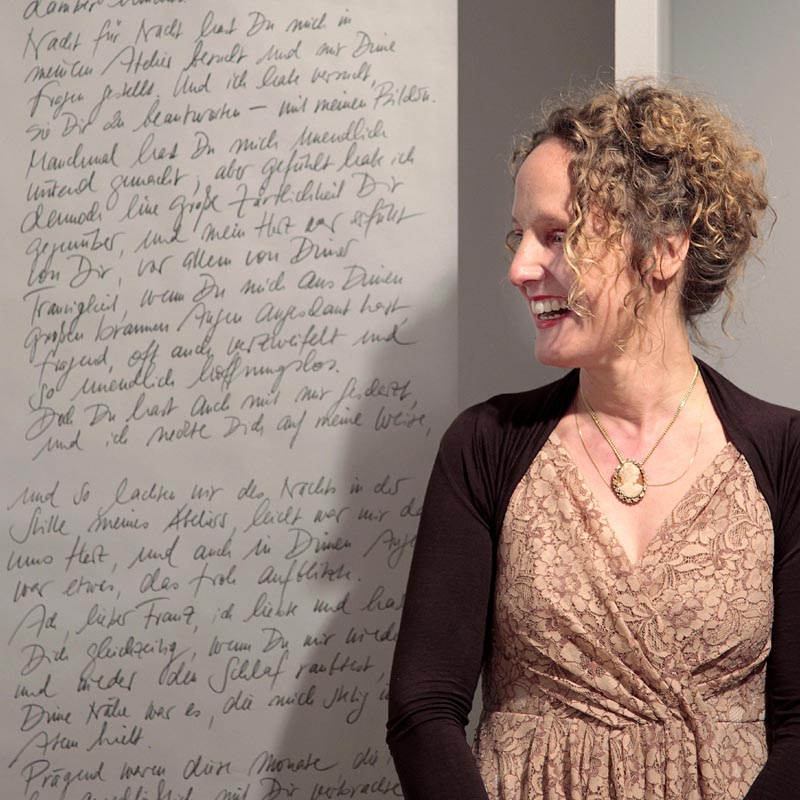 Nacht für Nacht hast Du mich in
meinem Atelier besucht und mir Deine
Fragen gestellt. Und ich habe versucht,
sie Dir zu beantworten – mit meinen Bildern.
Manchmal hast Du mich unendlich
wütend gemacht, aber gefühlt habe ich
dennoch eine große Zärtlichkeit Dir
gegenüber, und mein Herz war erfüllt
von Dir, vor allem von Deiner
Traurigkeit, wenn Du mich aus Deinen
großen braunen Augen angeschaut hast,
fragend, oft auch verzweifelt und
so unendlich hoffnungslos.
Doch Du hast auch mit mir gescherzt,
und ich neckte Dich auf meine Weise,
und so lachten wir des Nachts in der
Stille meines Ateliers, leicht war mir da
ums Herz, und auch in Deinen Auge
war etwas, das froh aufblitzte.
Ach, lieber Franz, ich liebte und has
Dich gleichzeitig, wenn Du mir wiede
und wieder den Schlaf raubtest,
Deine Nähe war es, die mich stetig in
Atem hielt.
Prägend waren diese Monate die i
mit Dir verbrachte